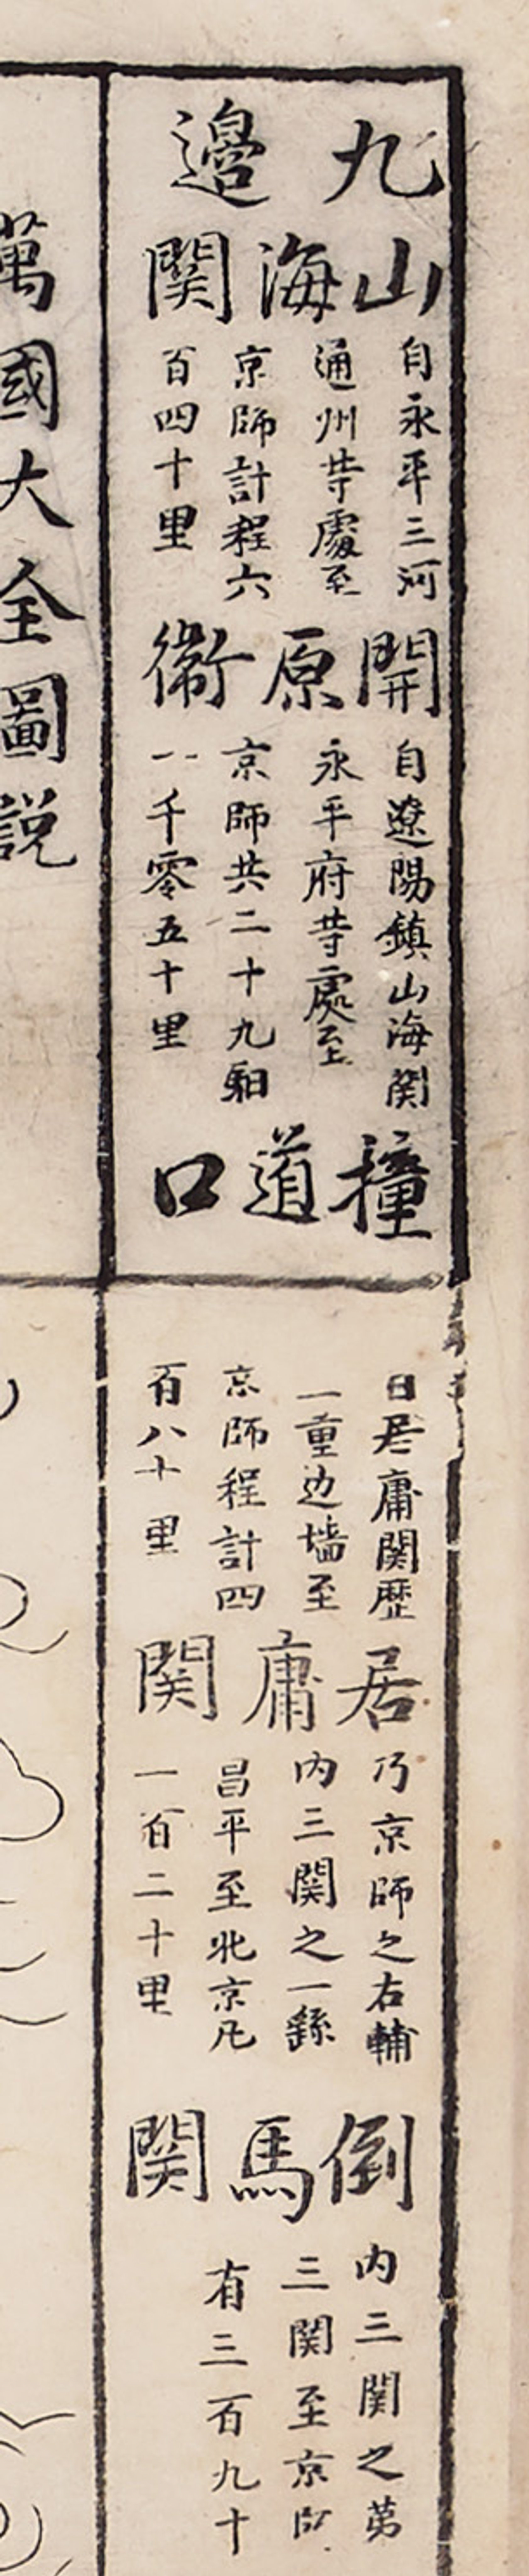 九邊
山海関
自永平三河
通州䒭處至
京師計程六
百四十里
開原衛
自遼陽鎮山海関
永平府䒭處至
京師共二十九馹
一千零五十里
撞道口
自居庸関歴
一重边墙至
京師程計四
百八十里
居庸関
乃京師之右輔
内三関之一繇
昌平至北京凡
一百二十里
倒馬関
内三関之苐
三関至京師
有三百九十
萬國大全圖説